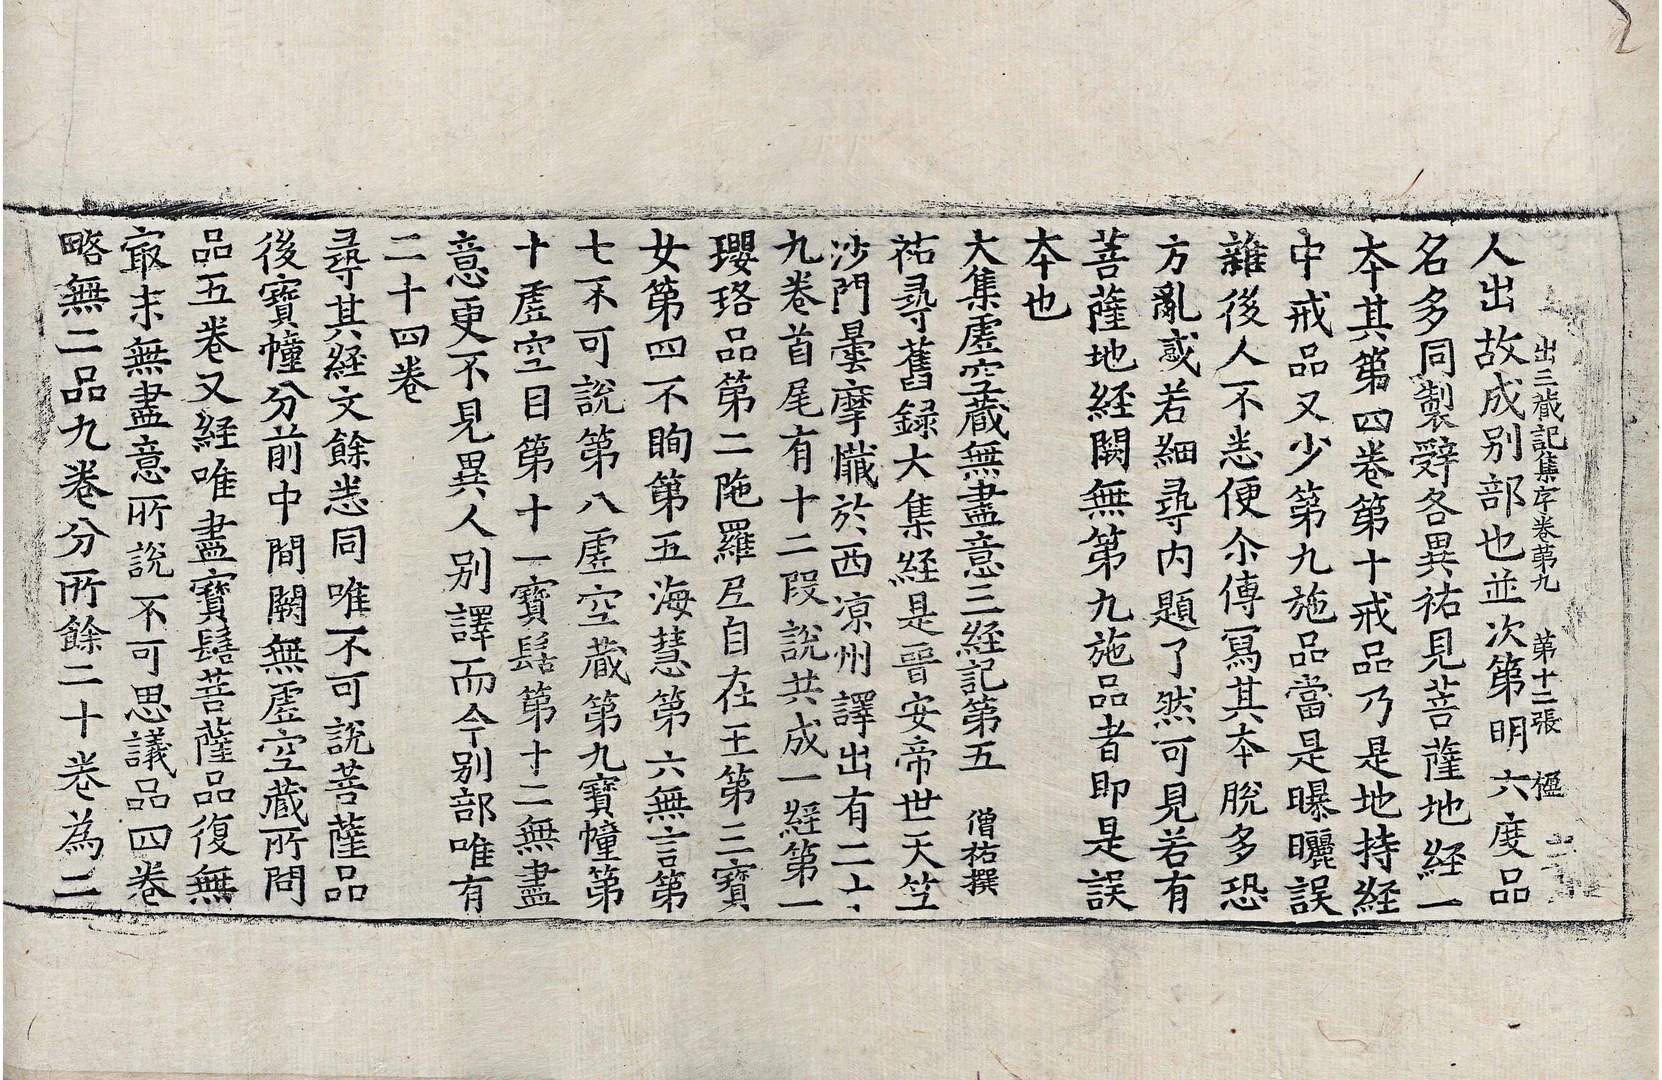 出三藏記集序卷第九　第十二張　極
人出故成別部也並次第明六度品
名多同製辭各異祐見菩薩地經一
本其第四卷第十戒品乃是地持經
中戒品又少第九施品當是曝曬誤
雜後人不悉便尒傳寫其本脫多恐
方亂惑若細尋內題了然可見若有
菩薩地經闕無第九施品者即是誤
本也
大集虛空藏無盡意三經記第五　僧祐撰
祐尋舊錄大集經是晉安帝世天竺
沙門曇摩懺於西凉州譯出有二十
九卷首尾有十二段說共成一經第一
瓔珞品第二陁羅尼自在王第三寶
女第四不眴第五海慧第六無言第
七不可說第八虛空藏第九寶幢第
十虛空目第十一寶髻第十二無盡
意更不見異人別譯而今別部唯有
二十四卷
尋其経文餘悉同唯不可說菩薩品
後寶幢分前中間闕無虛空藏所問
品五卷又経唯盡寶髻菩薩品復無
冣末無盡意所說不可思議品四卷
略無二品九卷分所餘二十卷為二